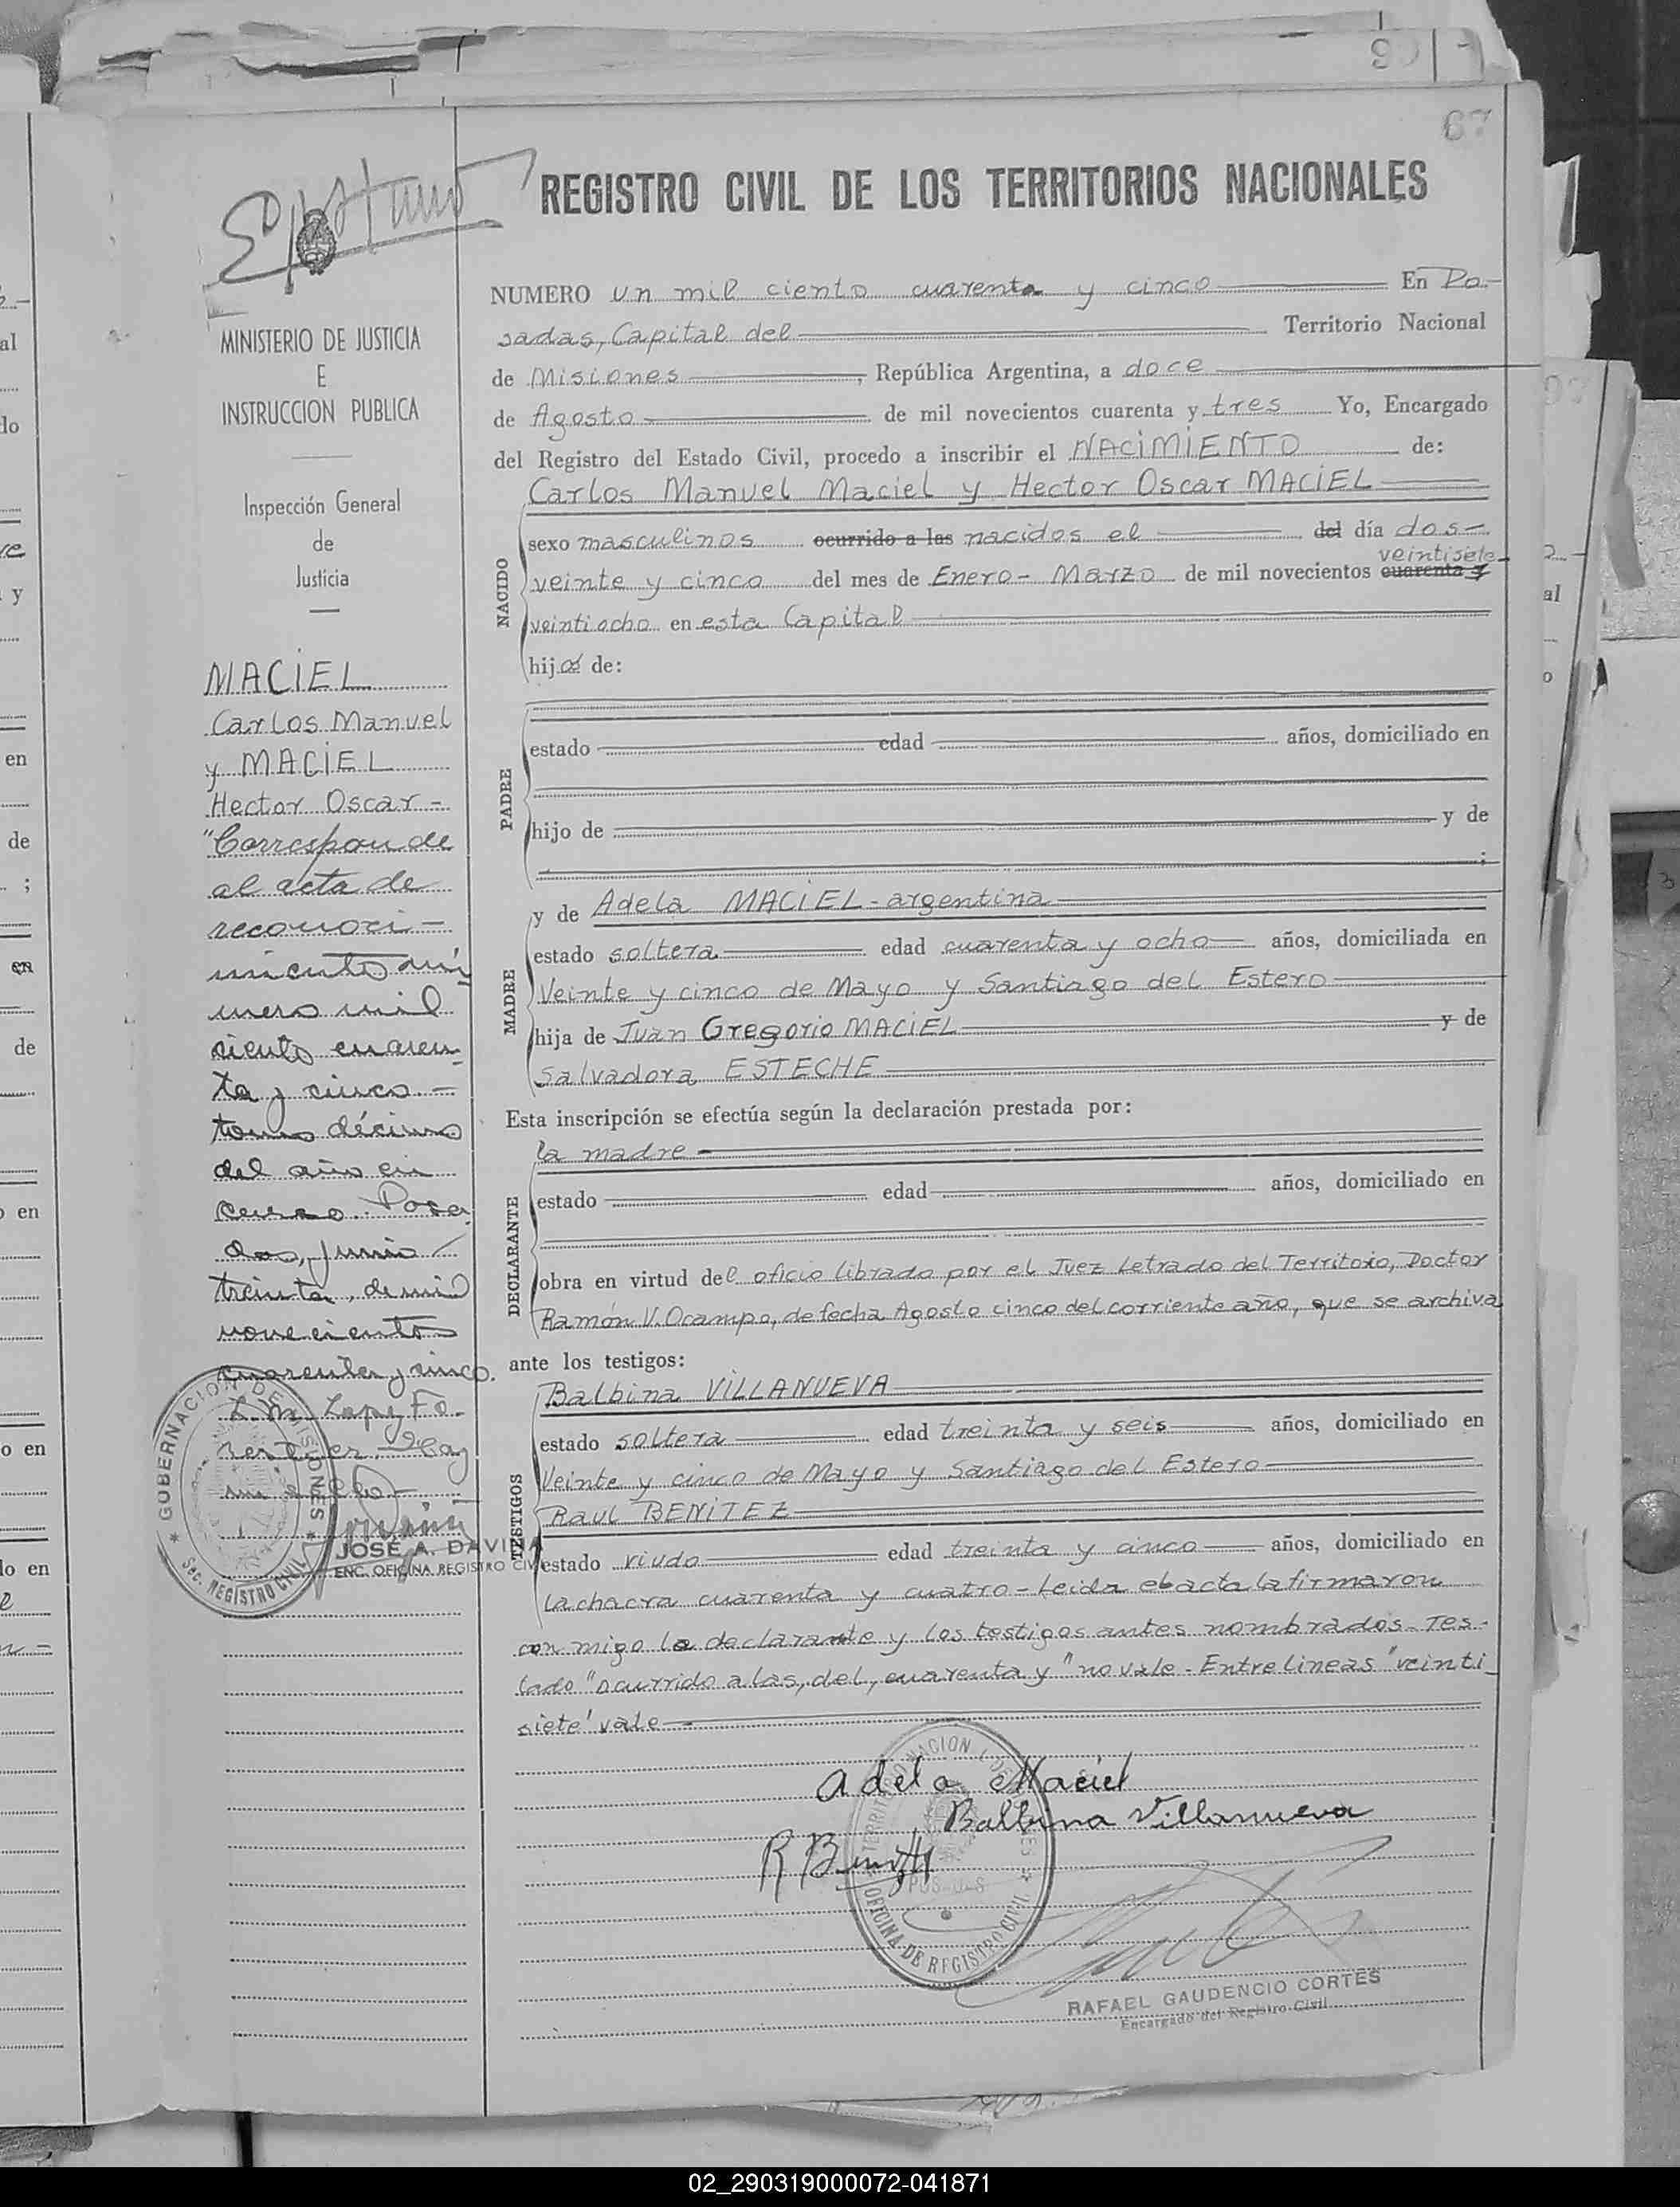 67
REGISTRO CIVIL DE LOS TERRITORIOS NACIONALES
MINISTERIO DE JUSTICIA
E
INSTRUCCION PUBLICA
Inspección General
de
Justicia
MACIEL
Carlos Manuel
y MACIEL
Hector Oscar -
"Correspon de
al acta de
reconoci -
miento nú
mero mil
ciento cuaren
ta y cinco. -
tomo décimo
del año en
curso. Posa
das, junio
treinta, de mil
novecientos
cuarenta y cinco.
GOBERNACION DE MISIONES
Sec. REGISTRO CIVIL
JOSÉ A. DAVIÑA
ENC. OFICINA REGISTRO CIV
NUMERO un mil ciento cuarenta y cinco En Po-
sadas, Capital del Territorio Nacional
de Misiones, República Argentina, a doce
de Agosto de mil novecientos cuarenta y tres Yo, Encargado
del Registro del Estado Civil, procedo a inscribir el NACIMIENTO de:
NACIDO
Carlos Manuel Maciel y Hector Oscar MACIEL
sexo masculinos ocurrido a las nacidos el del día dos-
veintisiete
veinte y cinco del mes de Enero - Marzo de mil novecientos cuarenta y
veintiocho en esta Capital
hijos de:
PADRE
estado edad años, domiciliado en
hijo de y de
;
MADRE
y de Adela MACIEL - argentina
estado soltera edad cuarenta y ocho años, domiciliada en
Veinte y cinco de Mayo y Santiago del Estero
hija de Juan Gregorio MACIEL y de
Salvadora ESTECHE
Esta inscripción se efectúa según la declaración prestada por:
DECLARANTE
la madre -
estado edad años, domiciliado en
obra en virtud del oficio librado por el Juez Letrado del Territorio, Doctor
Ramón V. Ocampo, de fecha Agosto cinco del corriente año, que se archiva
ante los testigos:
TESTIGOS
Balbina VILLANUEVA
estado soltera edad treinta y seis años, domiciliado en
Veinte y cinco de Mayo y Santiago del Estero
Raul BENITEZ
estado viudo edad treinta y cinco años, domiciliado en
la chacra cuarenta y cuatro - Leida el acta la firmaron
con migo la declarante y los testigos antes nombrados. Tes-
tado "ocurrido a las, del, cuarenta y" no vale - Entre lineas "veinti
siete" vale -
Adela Maciel
Balbina Villanueva
R Benitez
OFICINA DE REGISTRO CIVIL
RAFAEL GAUDENCIO CORTÉS
Encargado del Registro Civil
02_290319000072-041871